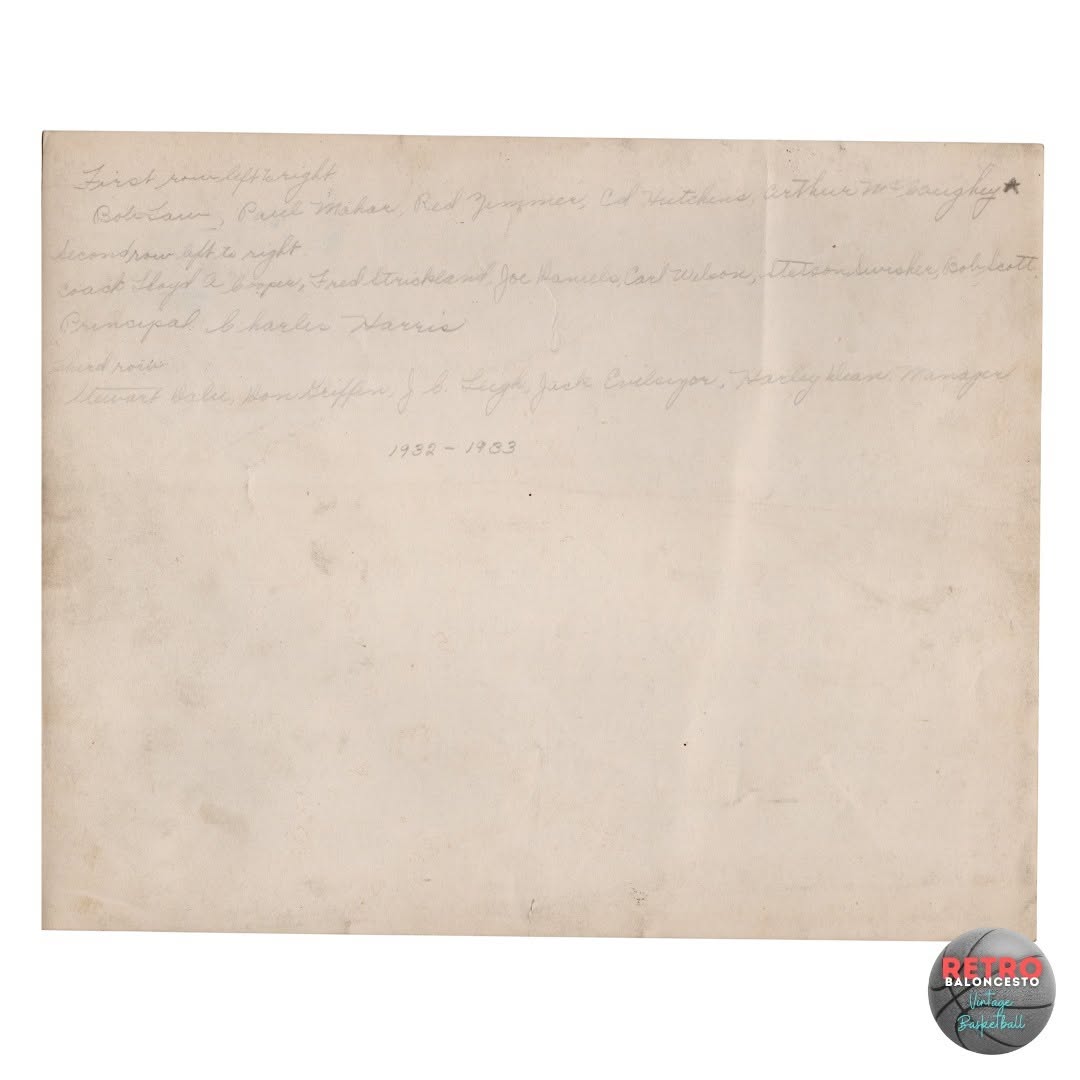 First row left to right
Bob Law, Paul Mahar, Red Zimmer, Ed Hutchins, Arthur McCaughey ★
Second row left to right
Coach Lloyd A Cooper, Fred Strickland, Joe Daniels, Carl Wilson, Stetson Swisher, Bob Scott
Principal Charles Harris
Third row
Stewart Don Griffin, J. C. Leigh, Jack Harley Dean Manager
1932 - 1933
RETRO
BALONCESTO
Vintage
Basketball